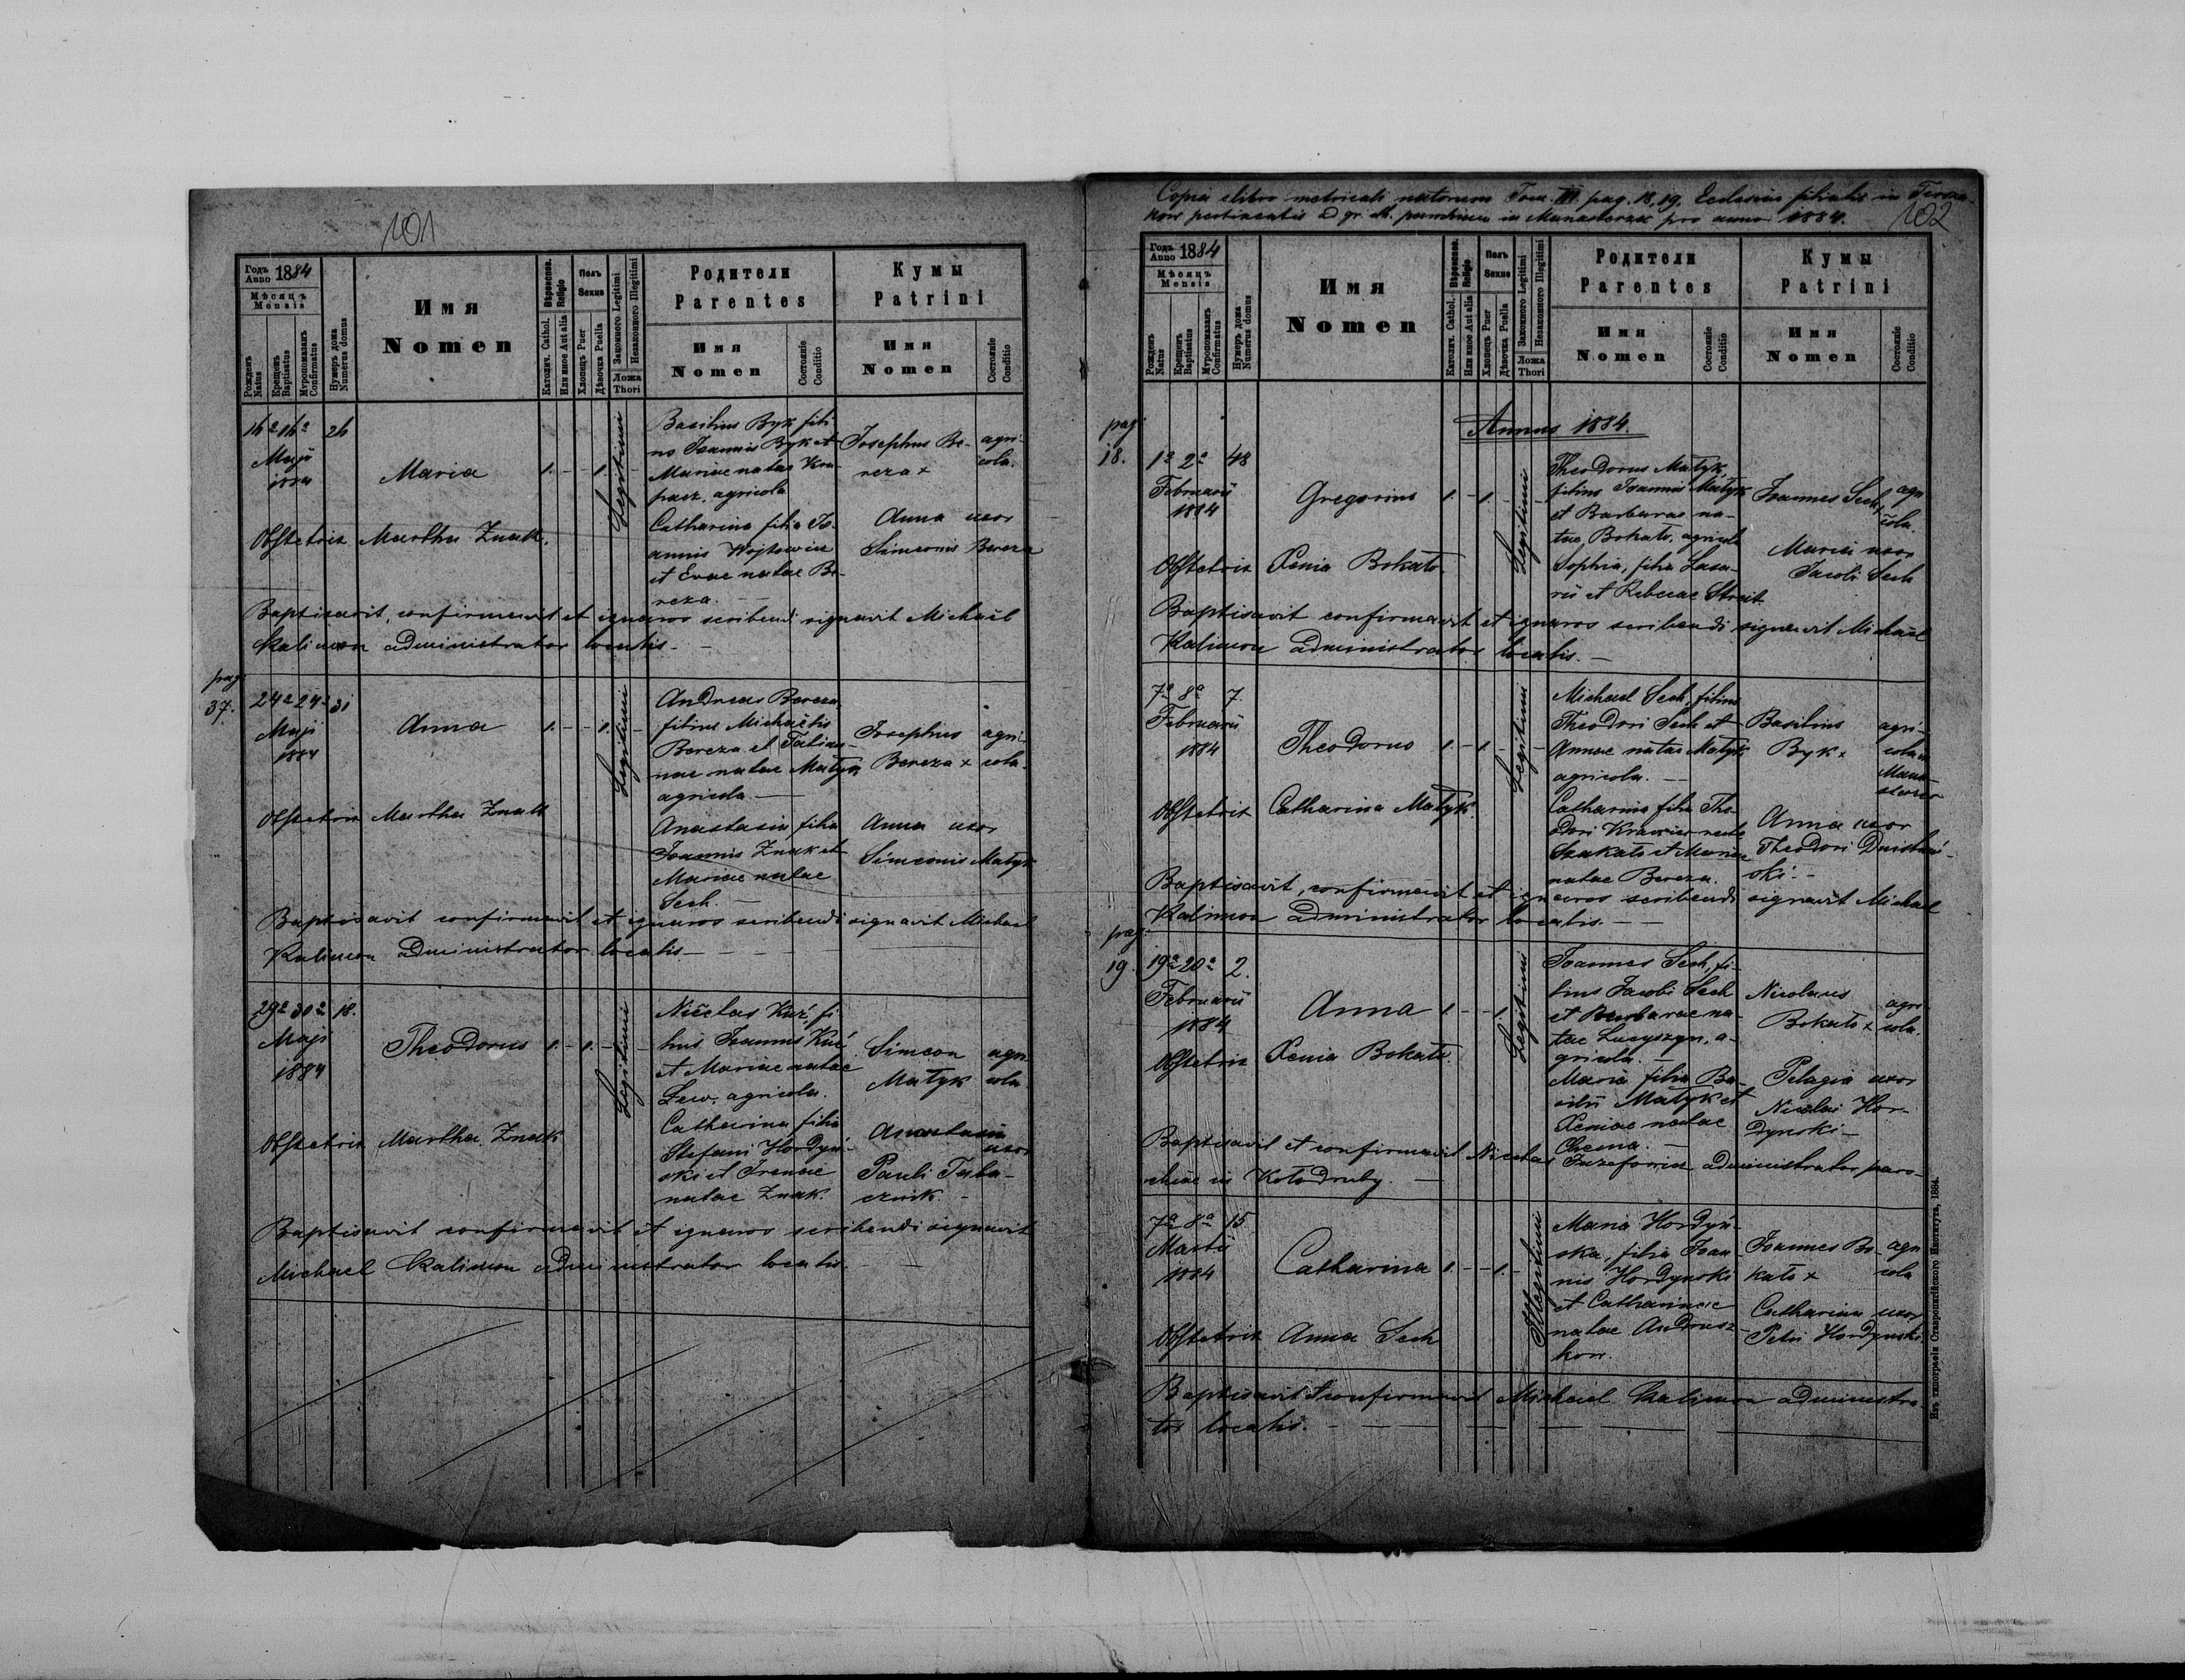 101
Годъ Anno 1884
Мѣсяцъ Mensis
Рожденъ Natus
Крещенъ Baptisatus
Мѵропомазанъ Confirmatus
Нумеръ дома Numerus domus
Имя Nomen
Вѣроиспов. Religio
Католич. Cathol.
Или иное Aut alia
Полъ Sexus
Хлопецъ Puer
Дѣвочка Puella
Законного Legitimi
Незаконного Illegitimi
Ложа Thori
Родители Parentes
Имя Nomen
Состояніе Conditio
Кумы Patrini
Имя Nomen
Состояніе Conditio
Maji
1884
Maria
1. - - 1.
Legitimi
Basilius Byk fili
us Joannis Byk et
Mariae natae Kra
pacz, agricola
Catharina filia Jo-
annis Wojtowicz
et Evae natae Be-
reza. -
Josephus Be-
reza x
agri-
cola.
Anna uxor
Simeonis Bereza
Obstetrix Martha Znak.
Baptisavit, confirmavit et ignaros scribendi signavit Michael
Kalimon administrator localis. -
pag.
37.
24a 24a 31
Maji
1884
Anna
1. - - 1. -
Legitimi
Andreas Bereza
filius Michaelis
Bereza et Tatian-
nae natae Matyk
agricola. -
Anastasia filia
Joannis Znak et
Mariae natae
Sech. -
Josephus
Bereza x
agri-
cola.
Anna uxor
Simeonis Matyk
Obstetrix Martha Znak
Baptisavit confirmavit et ignaros scribendi signavit Michael
Kalimon administrator localis. - - -
29a 30a 18.
Maji
1884
Theodorus
1. - 1. - -
Legitimi
Nicetas Kuć, fi-
lius Joannis Kuć
et Mariae natae
Lew, agricola.
Catharina filia
Stefani Hordyń-
ski et Irenae
natae Znak.
Simeon
Matyk
agri
cola
Anastasia
uxor
Pauli Taba-
cznik. -
Obstetrix Martha Znak
Baptisavit confirmavit et ignaros scribendi signavit
Michael Kalimon administrator localis. - -
Copia e libro metricali natorum Tom. III pag. 18, 19. Ecclesiae filialis in
pertinentis ad gr. ct. parochiam in Manasterzec pro anno 1884.
102
Годъ Anno 1884
Мѣсяцъ Mensis
Рожденъ Natus
Крещенъ Baptisatus
Мѵропомазанъ Confirmatus
Нумеръ дома Numerus domus
Имя Nomen
Вѣроиспов. Religio
Католич. Cathol.
Или иное Aut alia
Полъ Sexus
Хлопецъ Puer
Дѣвочка Puella
Законного Legitimi
Незаконного Illegitimi
Ложа Thori
Родители Parentes
Имя Nomen
Состояніе Conditio
Кумы Patrini
Имя Nomen
Состояніе Conditio
Annus 1884.
pag.
18.
1a 2a 48
Februarii
1884
Gregorius
1. - 1. - -
Legitimi
Theodorus Matyk,
filius Joannis Matyk
et Barbarae na-
tae Bokało, agricola
Sophia, filia Laza-
rii et Rebecae Streit
Joannes Sech x
agri
cola.
Maria uxor
Jacobi Sech
Obstetrix Xenia Bokało
Baptisavit confirmavit et ignaros scribendi signavit Michael
Kalimon administrator localis. -
7a 8a 7.
Februarii
1884
Theodorus
1. - 1. - -
Legitimi
Michael Sech, filius
Theodori Sech et
Annae natae Matyk
agricola. -
Catharina filia The-
odori Krawiec recte
Szakało et Mariae
natae Bereza.
Basilius
Byk x
agri-
cola
Anna uxor
Theodori Dniestrań-
ski. -
Obstetrix Catharina Matyk
Baptisavit, confirmavit et ignaros scribendi signavit Michael
Kalimon administrator localis. -
pag.
19.
19a 20a 2.
Februarii
1884
Anna
1. - - 1. -
Legitimi
Joannes Sech, fi-
lius Jacobi Sech
et Barbarae na-
tae Lucyszyn, a-
gricola. -
Maria filia Ba-
silii Matyk et
Xeniae natae
Choma. -
Nicolaus
Bokało x
agri
cola.
Pelagia uxor
Nicolai Hor-
dynski -
Obstetrix Xenia Bokało
Baptisavit et confirmavit Nicetas Juzefowicz administrator paro-
chiae in Kołodruby. -
7a 8a 15
Martii
1884
Catharina
1. - - 1. -
Illegitimi
Maria Hordyń-
ska, filia Joan-
nis Hordynski
et Catharinae
natae Andrusz-
kow.
Joannes Bo-
kało x
agri
cola
Catharina uxor
Petri Hordynski
Obstetrix Anna Sech
Baptisavit et confirmavit Michael Kalimon administra-
tor localis. - - -
Изъ типографіи Ставропигійского Института, 1884.